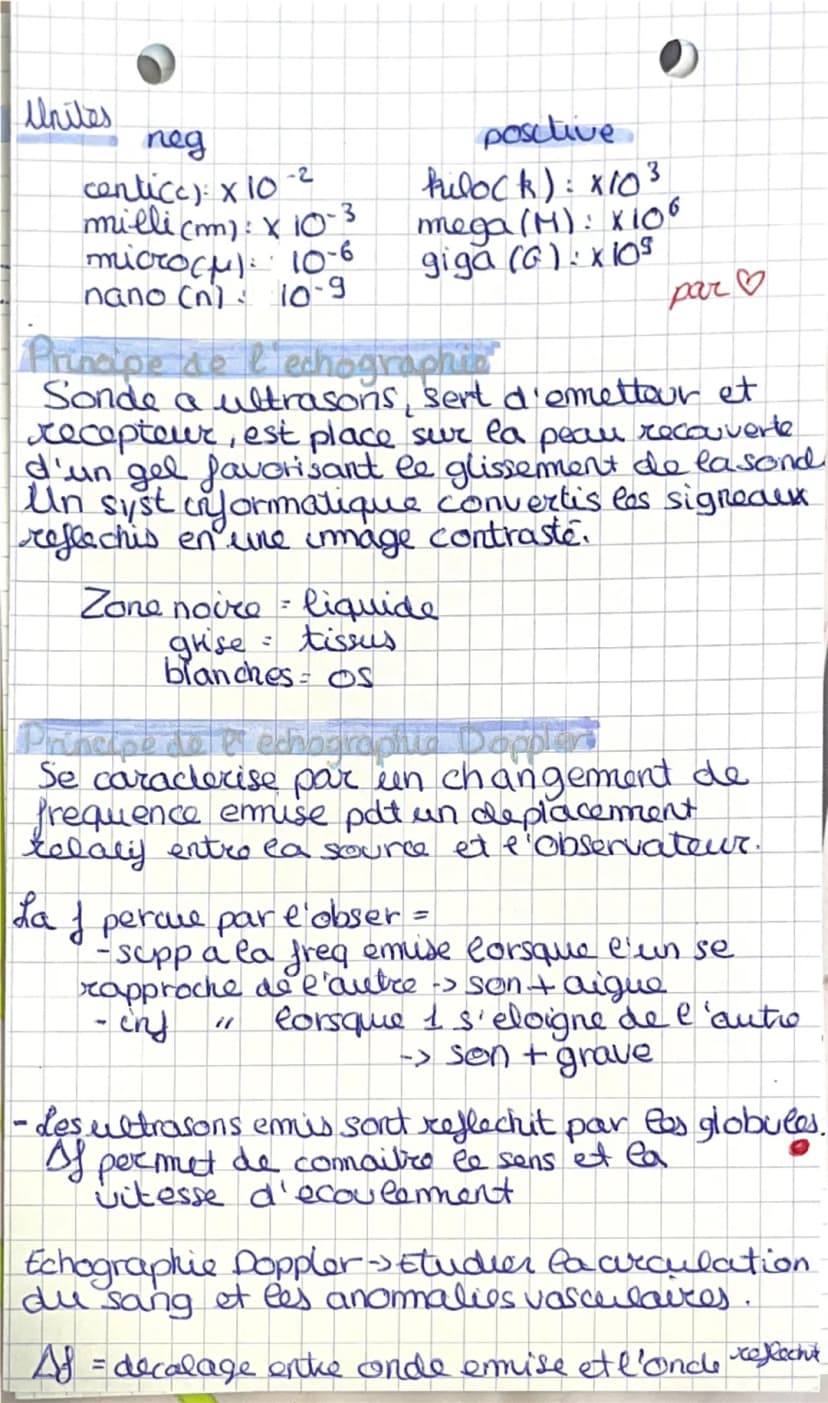 Unites
neg positive
centi(c): x 10⁻² kilo(k): x10³
milli(m): x 10⁻³ mega(M): x10⁶
micro(μ): 10⁻⁶ giga (G): x10⁹
nano (n): 10⁻⁹
par ♡
Principe de l'echographie
Sonde a ultrasons, sert d'emetteur et
recepteur, est place sur la peau recouverte
d'un gel favorisant le glissement de la sond
Un syst informatique convertis les signeaux
reflechis en une image contrasté.
Zone noire = liquide
grise = tissus
blanches = os
Principe de l'echographie Doppler
Se caracterise par un changement de
frequence emise pdt un deplacement
relatif entre la source et l'observateur.
La f percue par l'obser =
- supp a la freq emise lorsque l'un se
rapproche de l'autre -> son + aigue
- inf " lorsque 1 s'eloigne de l'autre
-> son + grave
- Les ultrasons emis sont reflechit par les globules.
Δf permet de connaitre le sens et la
vitesse d'ecoulement
Echographie Doppler -> Etudier la circulation
du sang et les anomalies vasculaires.
Δf = decalage entre onde emise et l'onde reflechit